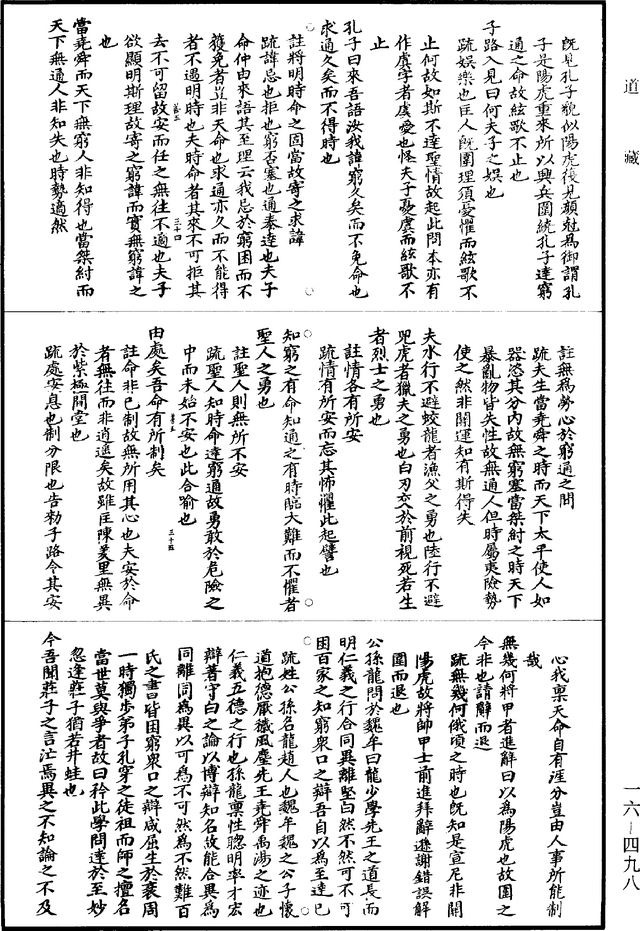 道藏
既見孔子貌似陽虎後見顏尅為御謂孔
子是陽虎重來所以興兵圍繞孔子達窮
通之命故絃歌不止也
子路入見曰何夫子之娛也
疏娛樂也匡人既圍理須憂懼而絃歌不
止何故如斯不達聖情故起此問本亦有
作虞字者虞憂也怪夫子憂虞而絃歌不
止
孔子曰來吾語汝我諱窮久矣而不免命也
求通久矣而不得時也
註將明時命之固當故寄之求諱
疏諱忌也拒也窮否塞也通泰達也夫子
命仲由來語其至理云我忌於窮困而不
獲免者豈非天命也求通亦久而不能得
者不遇明時也夫時命者其來不可拒其
去不可留故安而任之無往不適也夫子
欲顯明斯理故寄之窮諱而實無窮諱之
也
當堯舜而天下無窮人非知得也當桀紂而
天下無通人非知失也時勢適然
註無為勞心於窮通之間
疏夫生當堯舜之時而天下太平使人如
器恣其分內故無窮塞當桀紂之時天下
暴亂物皆失性故無通人但時屬夷險勢
使之然非關運知有斯得失
夫水行不避蛟龍者漁父之勇也陸行不避
兕虎者獵夫之勇也白刃交於前視死若生
者烈士之勇也
註情各有所安
疏情有所安而忘其怖懼此起譬也
知窮之有命知通之有時臨大難而不懼者
聖人之勇也
註聖人則無所不安
疏聖人知時命達窮通故勇敢於危險之
中而未始不安也此合喻也
由處矣吾命有所制矣
註命非己制故無所用其心也夫安於命
者無往而非逍遙矣故雖匡陳羑里無異
於紫極閒堂也
疏處安息也制分限也告勑子路令其安
心我稟天命自有涯分豈由人事所能制
哉
無幾何將甲者進辭曰以為陽虎也故圍之
今非也請辭而退
疏無幾何俄頃之時也既知是宣尼非關
陽虎故將帥甲士前進拜辭遜謝錯誤解
圍而退也
公孫龍問於魏牟曰龍少學先王之道長而
明仁義之行合同異離堅白然不然可不可
困百家之知窮衆口之辯吾自以為至達已
疏姓公孫名龍趙人也魏牟魏之公子懷
道抱德厭穢風塵先王堯舜禹湯之迹也
仁義五德之行也孫龍稟性聰明率才宏
辯著守白之論以博辯知名故能合異為
同離同為異以可為不可然為不然難百
氏之書皆困窮衆口之辯咸屈生於衰周
一時獨步弟子孔穿之徒祖而師之擅名
當世莫與爭者故曰矜此學問達於至妙
忽逢莊子猶若井蛙也
今吾聞莊子之言汒焉異之不知論之不及
一六－四九八